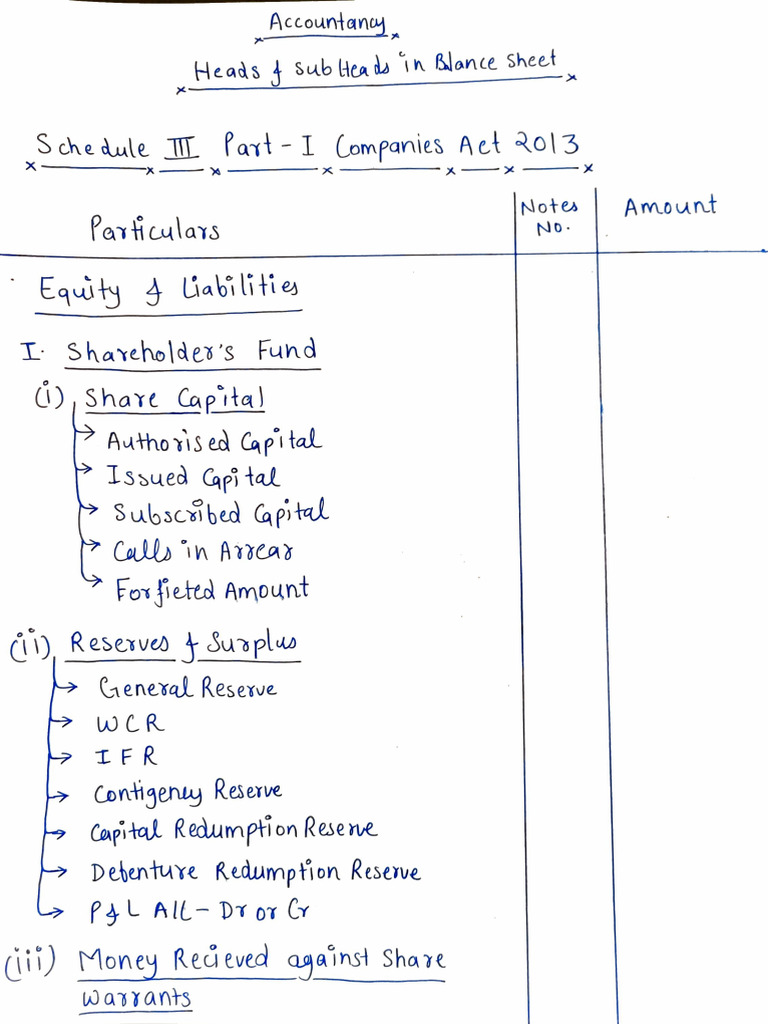 Accountancy
Heads & Sub Heads in Blance Sheet
Schedule III Part - I Companies Act 2013
Particulars
Notes No.
Amount
Equity & Liabilities
I. Shareholder's Fund
(i) Share Capital
Authorised Capital
Issued Capital
Subscribed Capital
Calls in Arrear
Forfieted Amount
(ii) Reserves & Surplus
General Reserve
WCR
IFR
Contigency Reserve
Capital Redumption Reserve
Debenture Redumption Reserve
P & L A/c - Dr or Cr
(iii) Money Recieved against Share
warrants